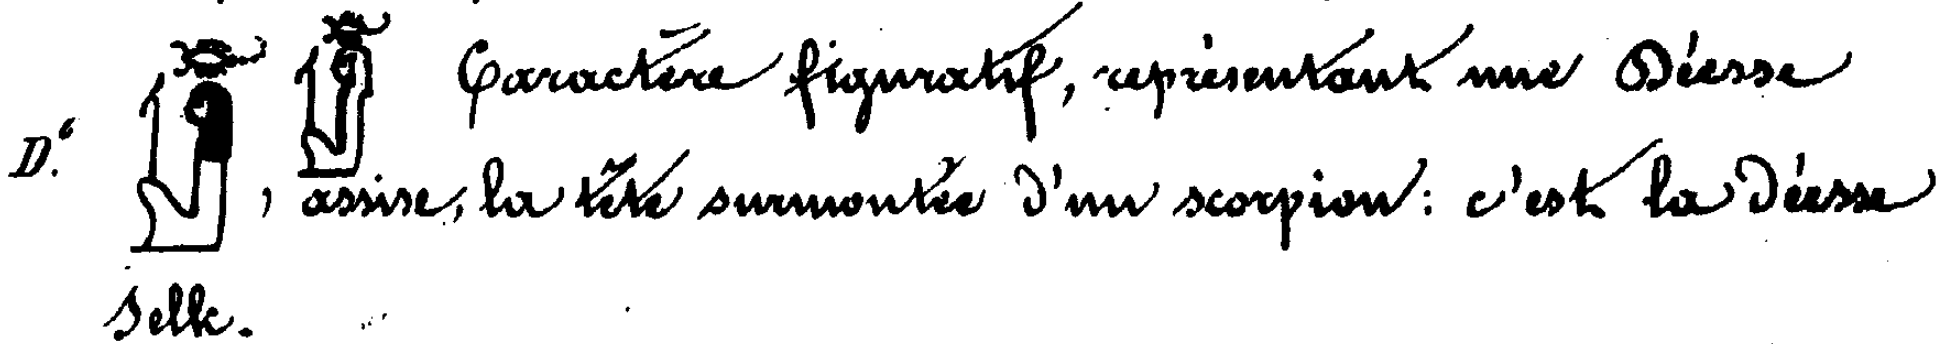 Caractère figuratif, représentant une Déesse
D.é , assise, la tête surmontée d'un scorpion: c'est la Déesse
Selk.